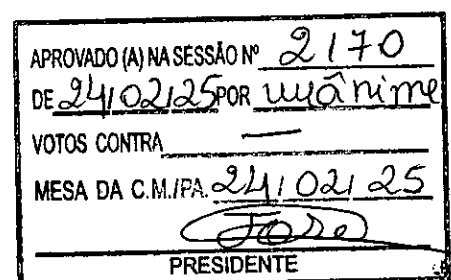 APROVADO (A) NA SESSÃO Nº 2170
DE 24/02/25 POR unânime
VOTOS CONTRA —
MESA DA C.M./PA. 24/02/25
PRESIDENTE